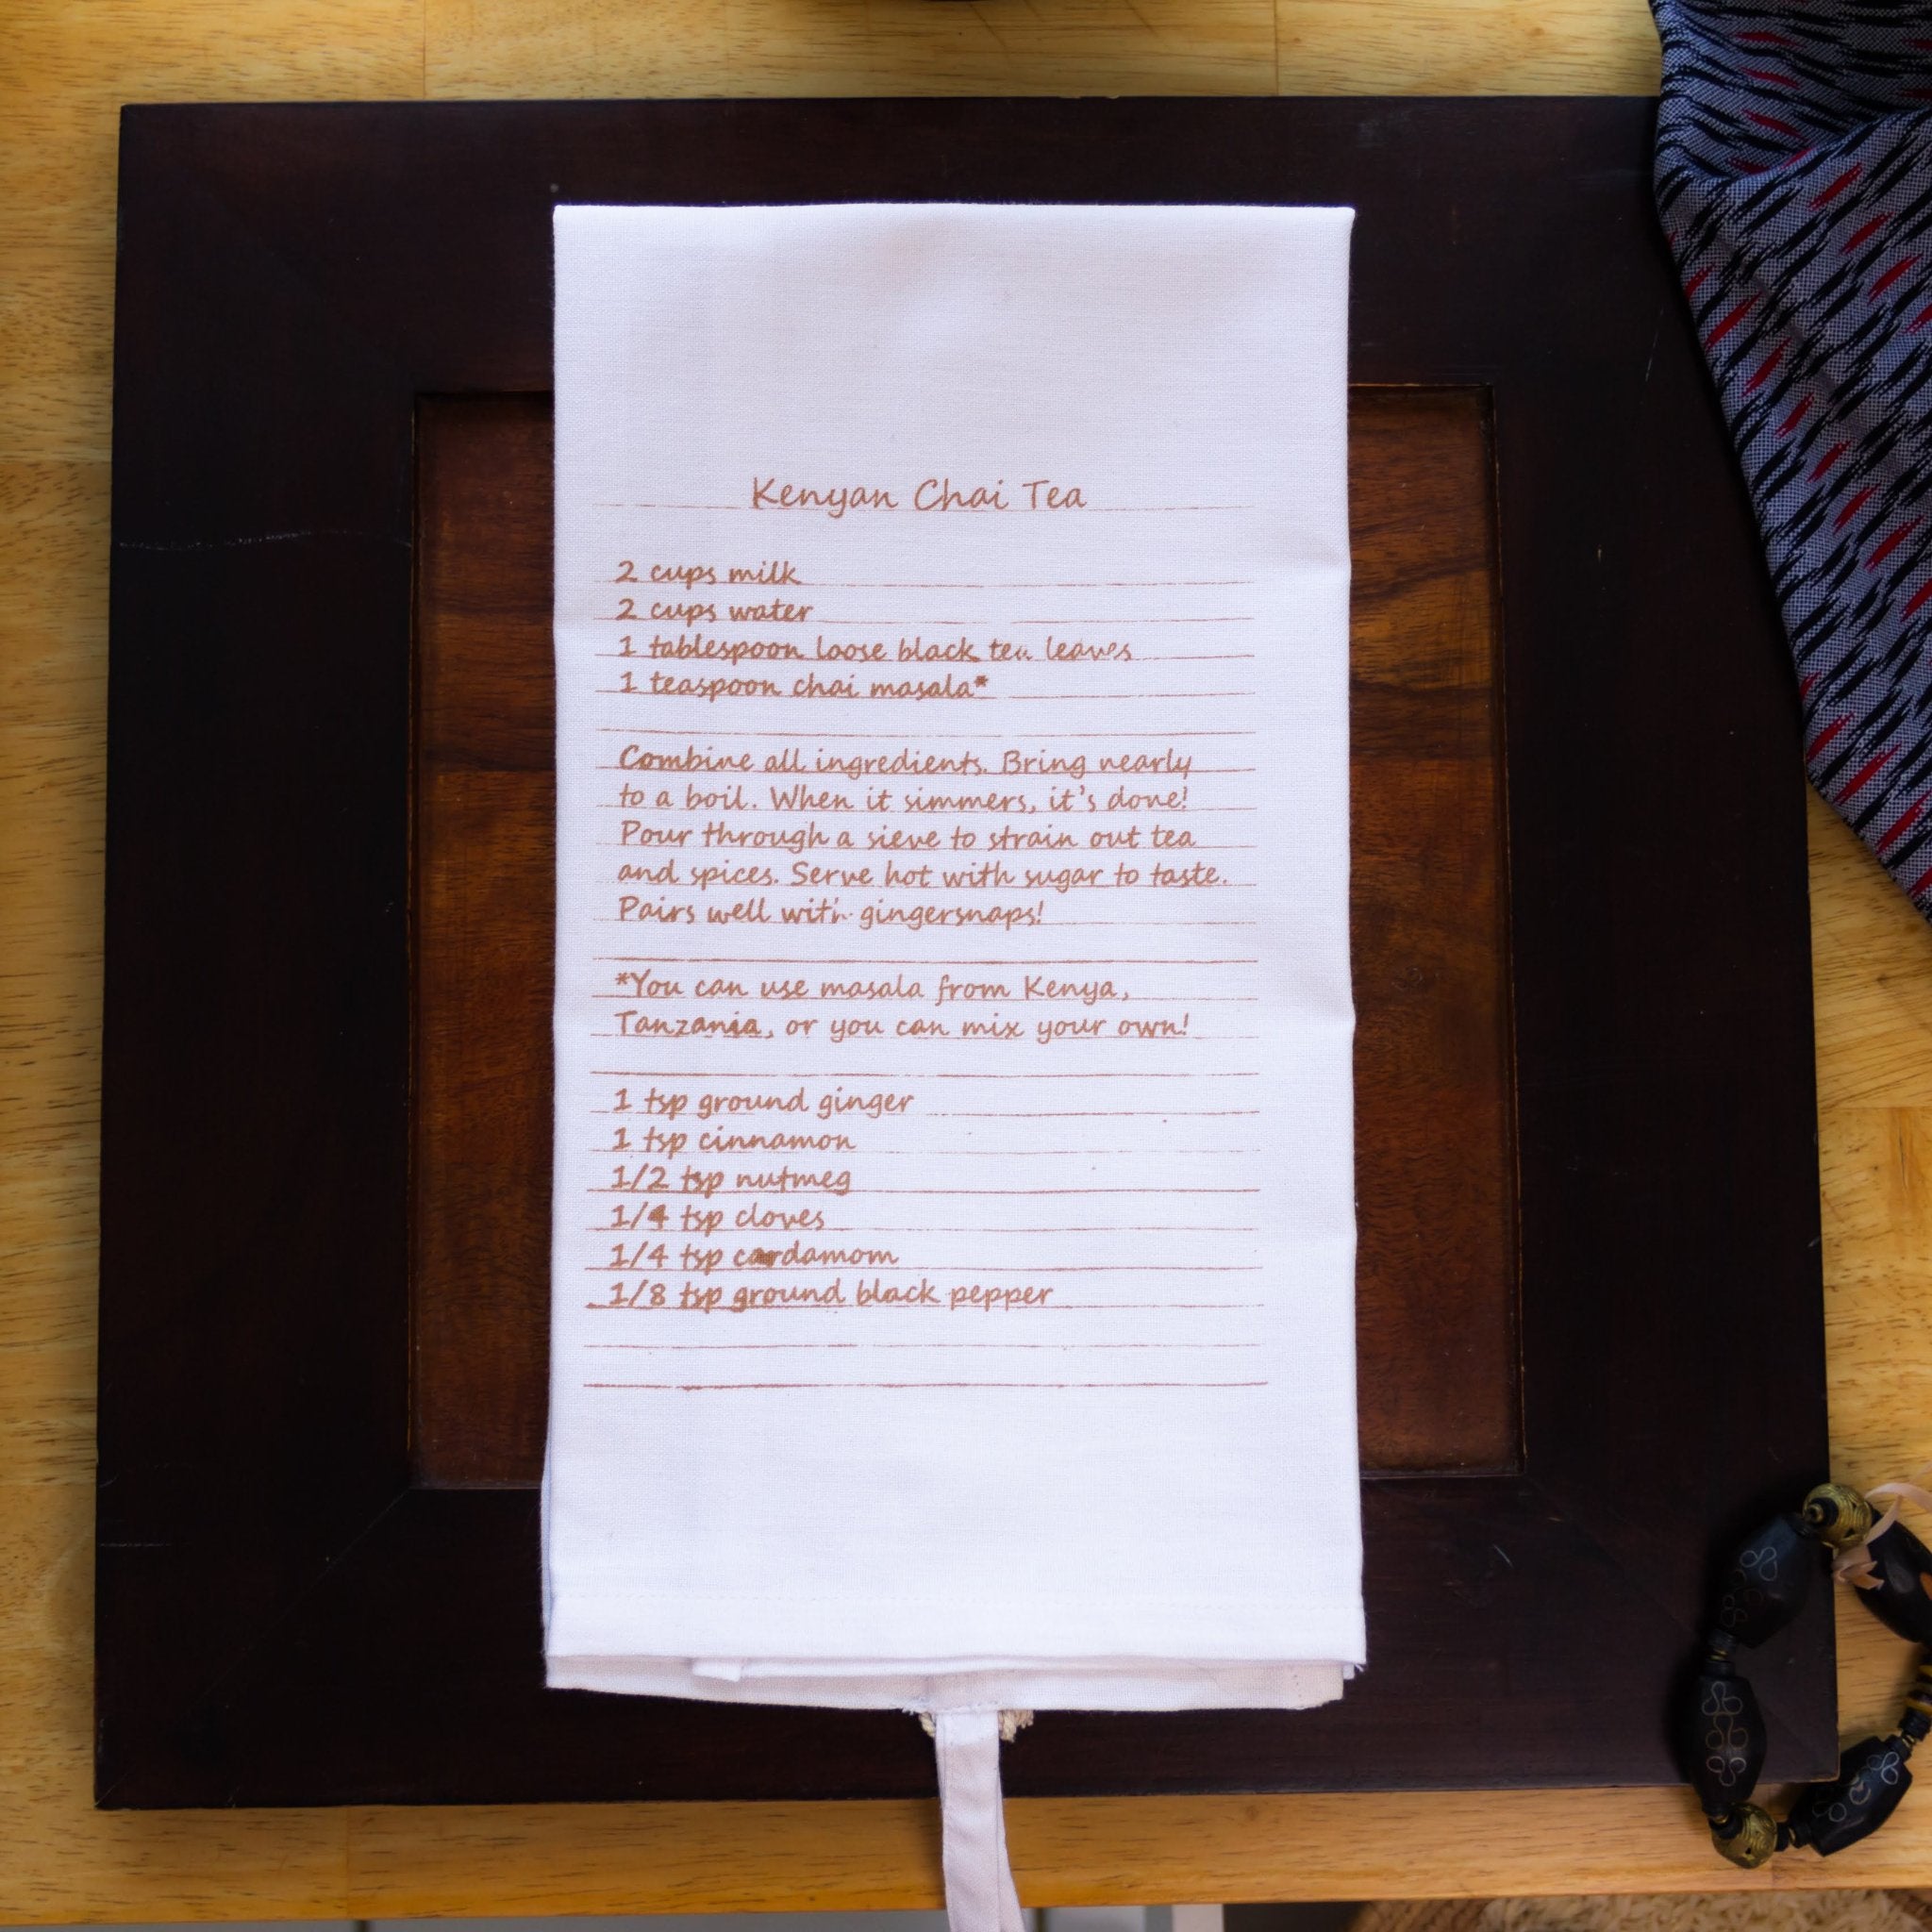 Kenyan Chai Tea
2 cups milk
2 cups water
1 tablespoon loose black tea leaves
1 teaspoon chai masala*
Combine all ingredients. Bring nearly
to a boil. When it simmers, it's done!
Pour through a sieve to strain out tea
and spices. Serve hot with sugar to taste.
Pairs well with gingersnaps!
*You can use masala from Kenya,
Tanzania, or you can mix your own!
1 tsp ground ginger
1 tsp cinnamon
1/2 tsp nutmeg
1/4 tsp cloves
1/4 tsp cardamom
1/8 tsp ground black pepper